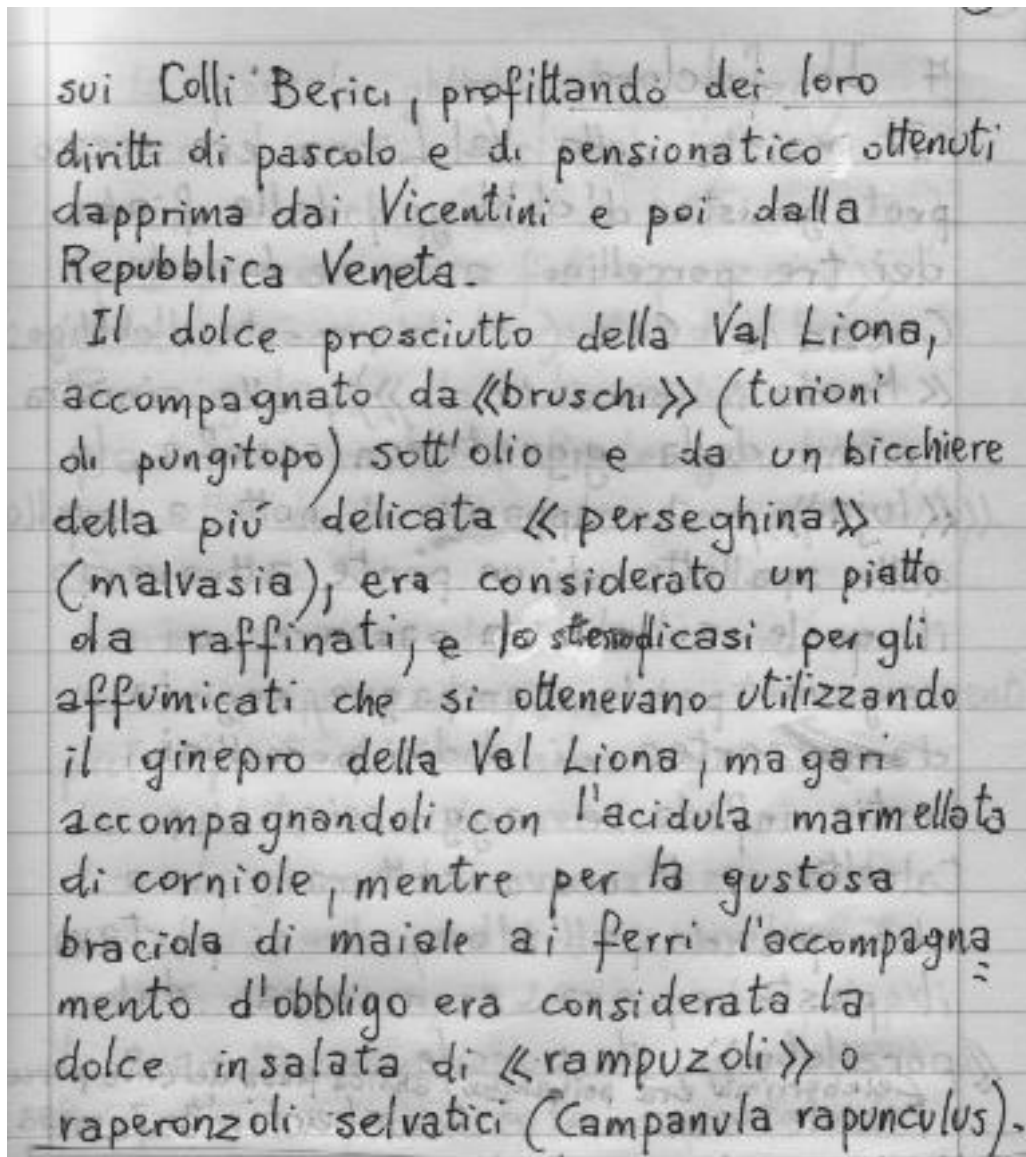 sui Colli Berici, profittando dei loro
diritti di pascolo e di pensionatico ottenuti
dapprima dai Vicentini e poi dalla
Repubblica Veneta.
Il dolce prosciutto della Val Liona,
accompagnato da «bruschi» (turioni
di pungitopo) sott'olio e da un bicchiere
della più delicata «perseghina»
(malvasia), era considerato un piatto
da raffinati, e lo stesso dicasi per gli
affumicati che si ottenevano utilizzando
il ginepro della Val Liona, magari
accompagnandoli con l'acidula marmellata
di corniole, mentre per la gustosa
braciola di maiale ai ferri l'accompagna=
mento d'obbligo era considerata la
dolce insalata di «rampuzoli» o
raperonzoli selvatici (Campanula rapunculus).